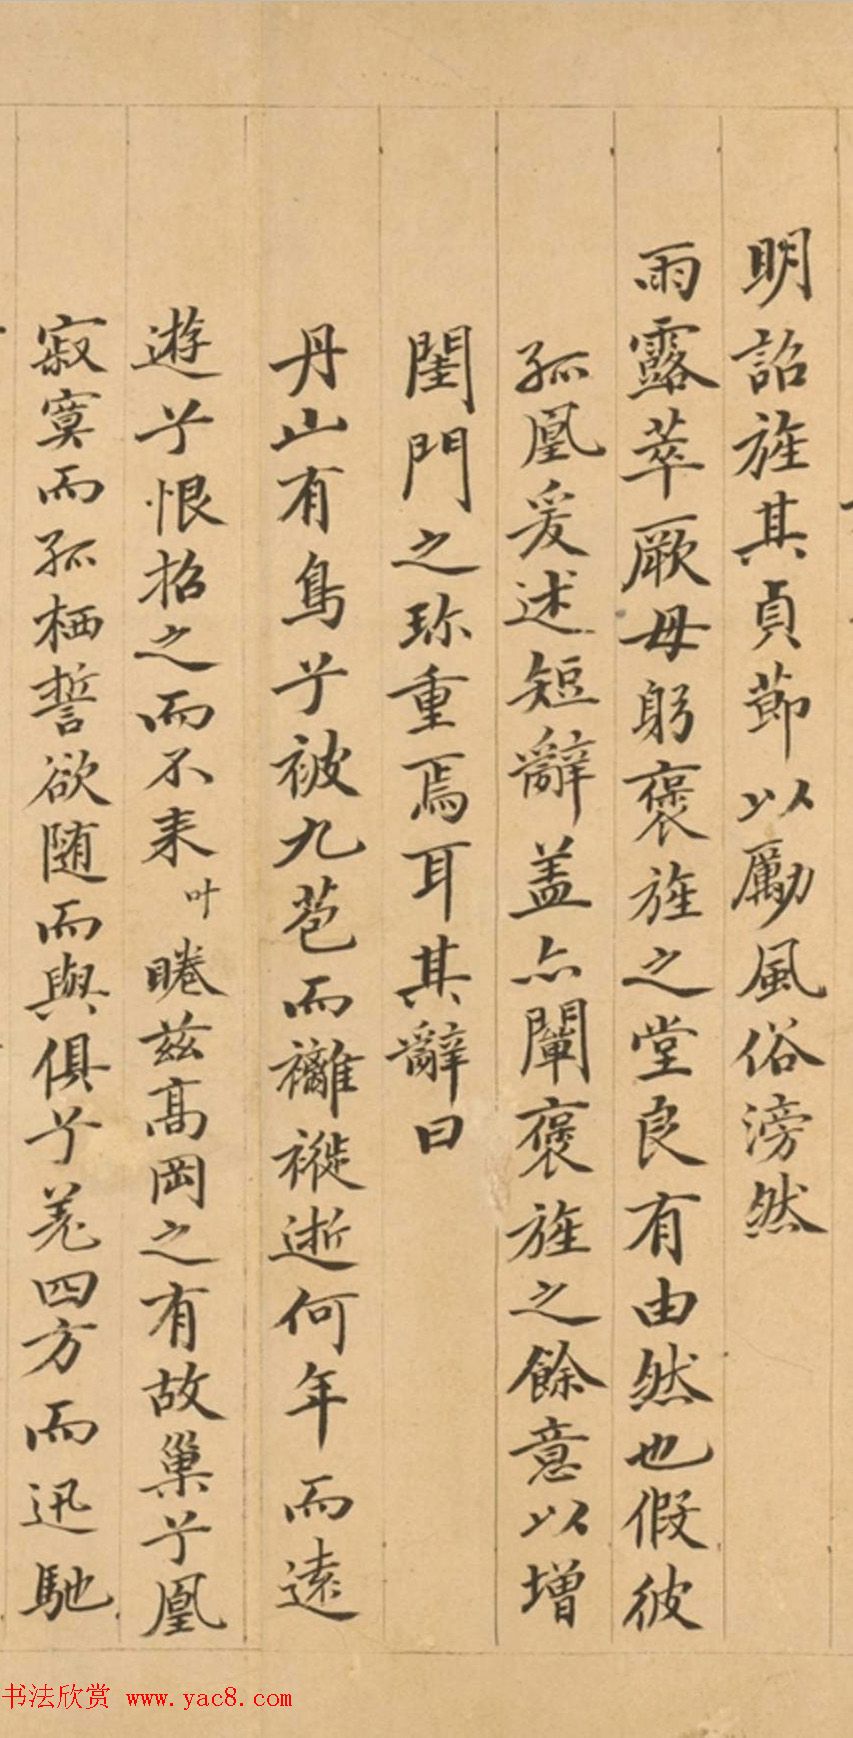 明詔旌其貞節以勵風俗滂然
雨露萃厥母躬褒旌之堂良有由然也假彼
孤凰爰述短辭盖亦闡褒旌之餘意以增
閨門之珎重焉耳其辭曰
丹山有鳥兮被九苞而襹褷逝何年而遠
遊兮恨招之而不来叶睠兹高岡之有故巢兮凰
寂寞而孤栖誓欲随而與俱兮羌四方而迅馳
书法欣赏 www.yac8.com